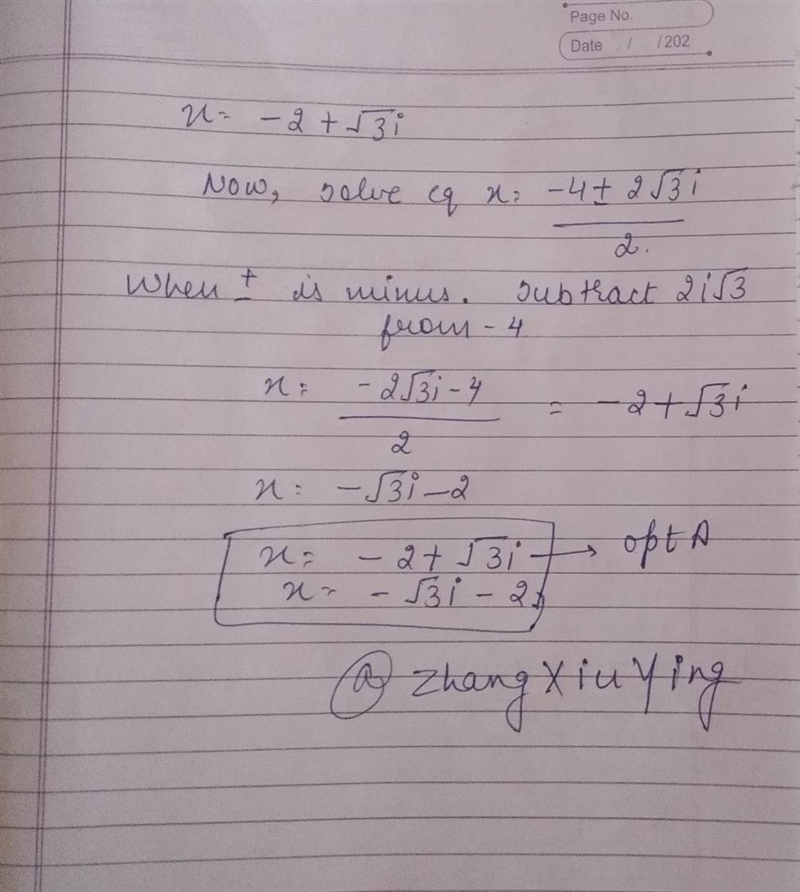 Page No.
Date / /202
x = -2 + √3i
Now, solve eq x = (-4 ± 2√3i)/2.
When ± is minus. Subtract 2i√3
from -4
x = (-2√3i - 4)/2 = -2 + √3i
x = -√3i - 2
x = -2 + √3i → opt A
x = -√3i - 2
@ZhangXiuYing